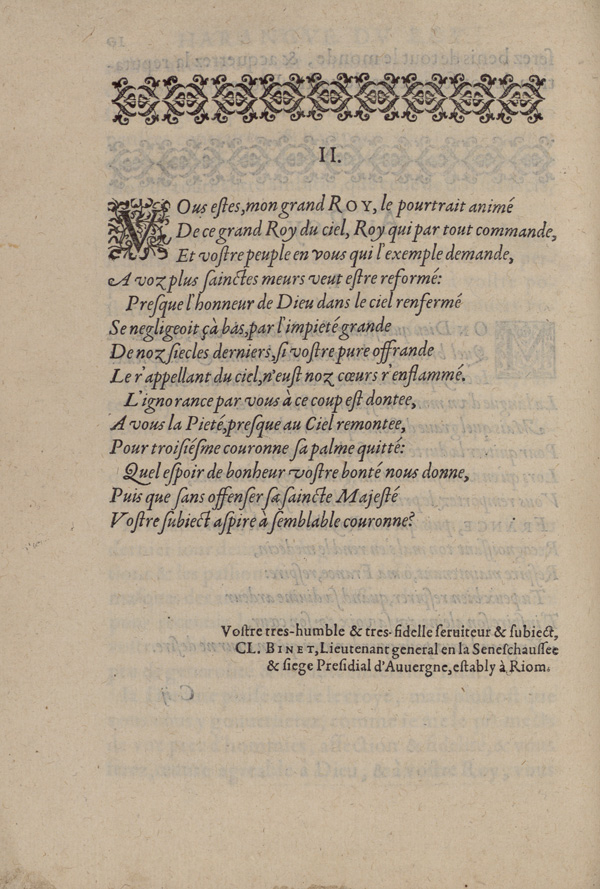 II.
VOus estes, mon grand ROY, le pourtrait animé
De ce grand Roy du ciel, Roy qui par tout commande,
Et vostre peuple en vous qui l'exemple demande,
A voz plus sainctes meurs veut estre reformé:
Presque l'honneur de Dieu dans le ciel renfermé
Se negligeoit çà bas, par l'impieté grande
De noz siecles derniers, si vostre pure offrande
Le r'appellant du ciel, n'eust noz cœurs r'enflammé.
L'ignorance par vous à ce coup est dontee,
A vous la Pieté, presque au Ciel remontee,
Pour troisiésme couronne sa palme quitté:
Quel espoir de bonheur vostre bonté nous donne,
Puis que sans offenser sa saincte Majesté
Vostre subiect aspire à semblable couronne?
Vostre tres-humble & tres-fidelle seruiteur & subiect,
CL. BINET, Lieutenant general en la Seneschaussee
& siege Presidial d'Auuergne, estably à Riom.